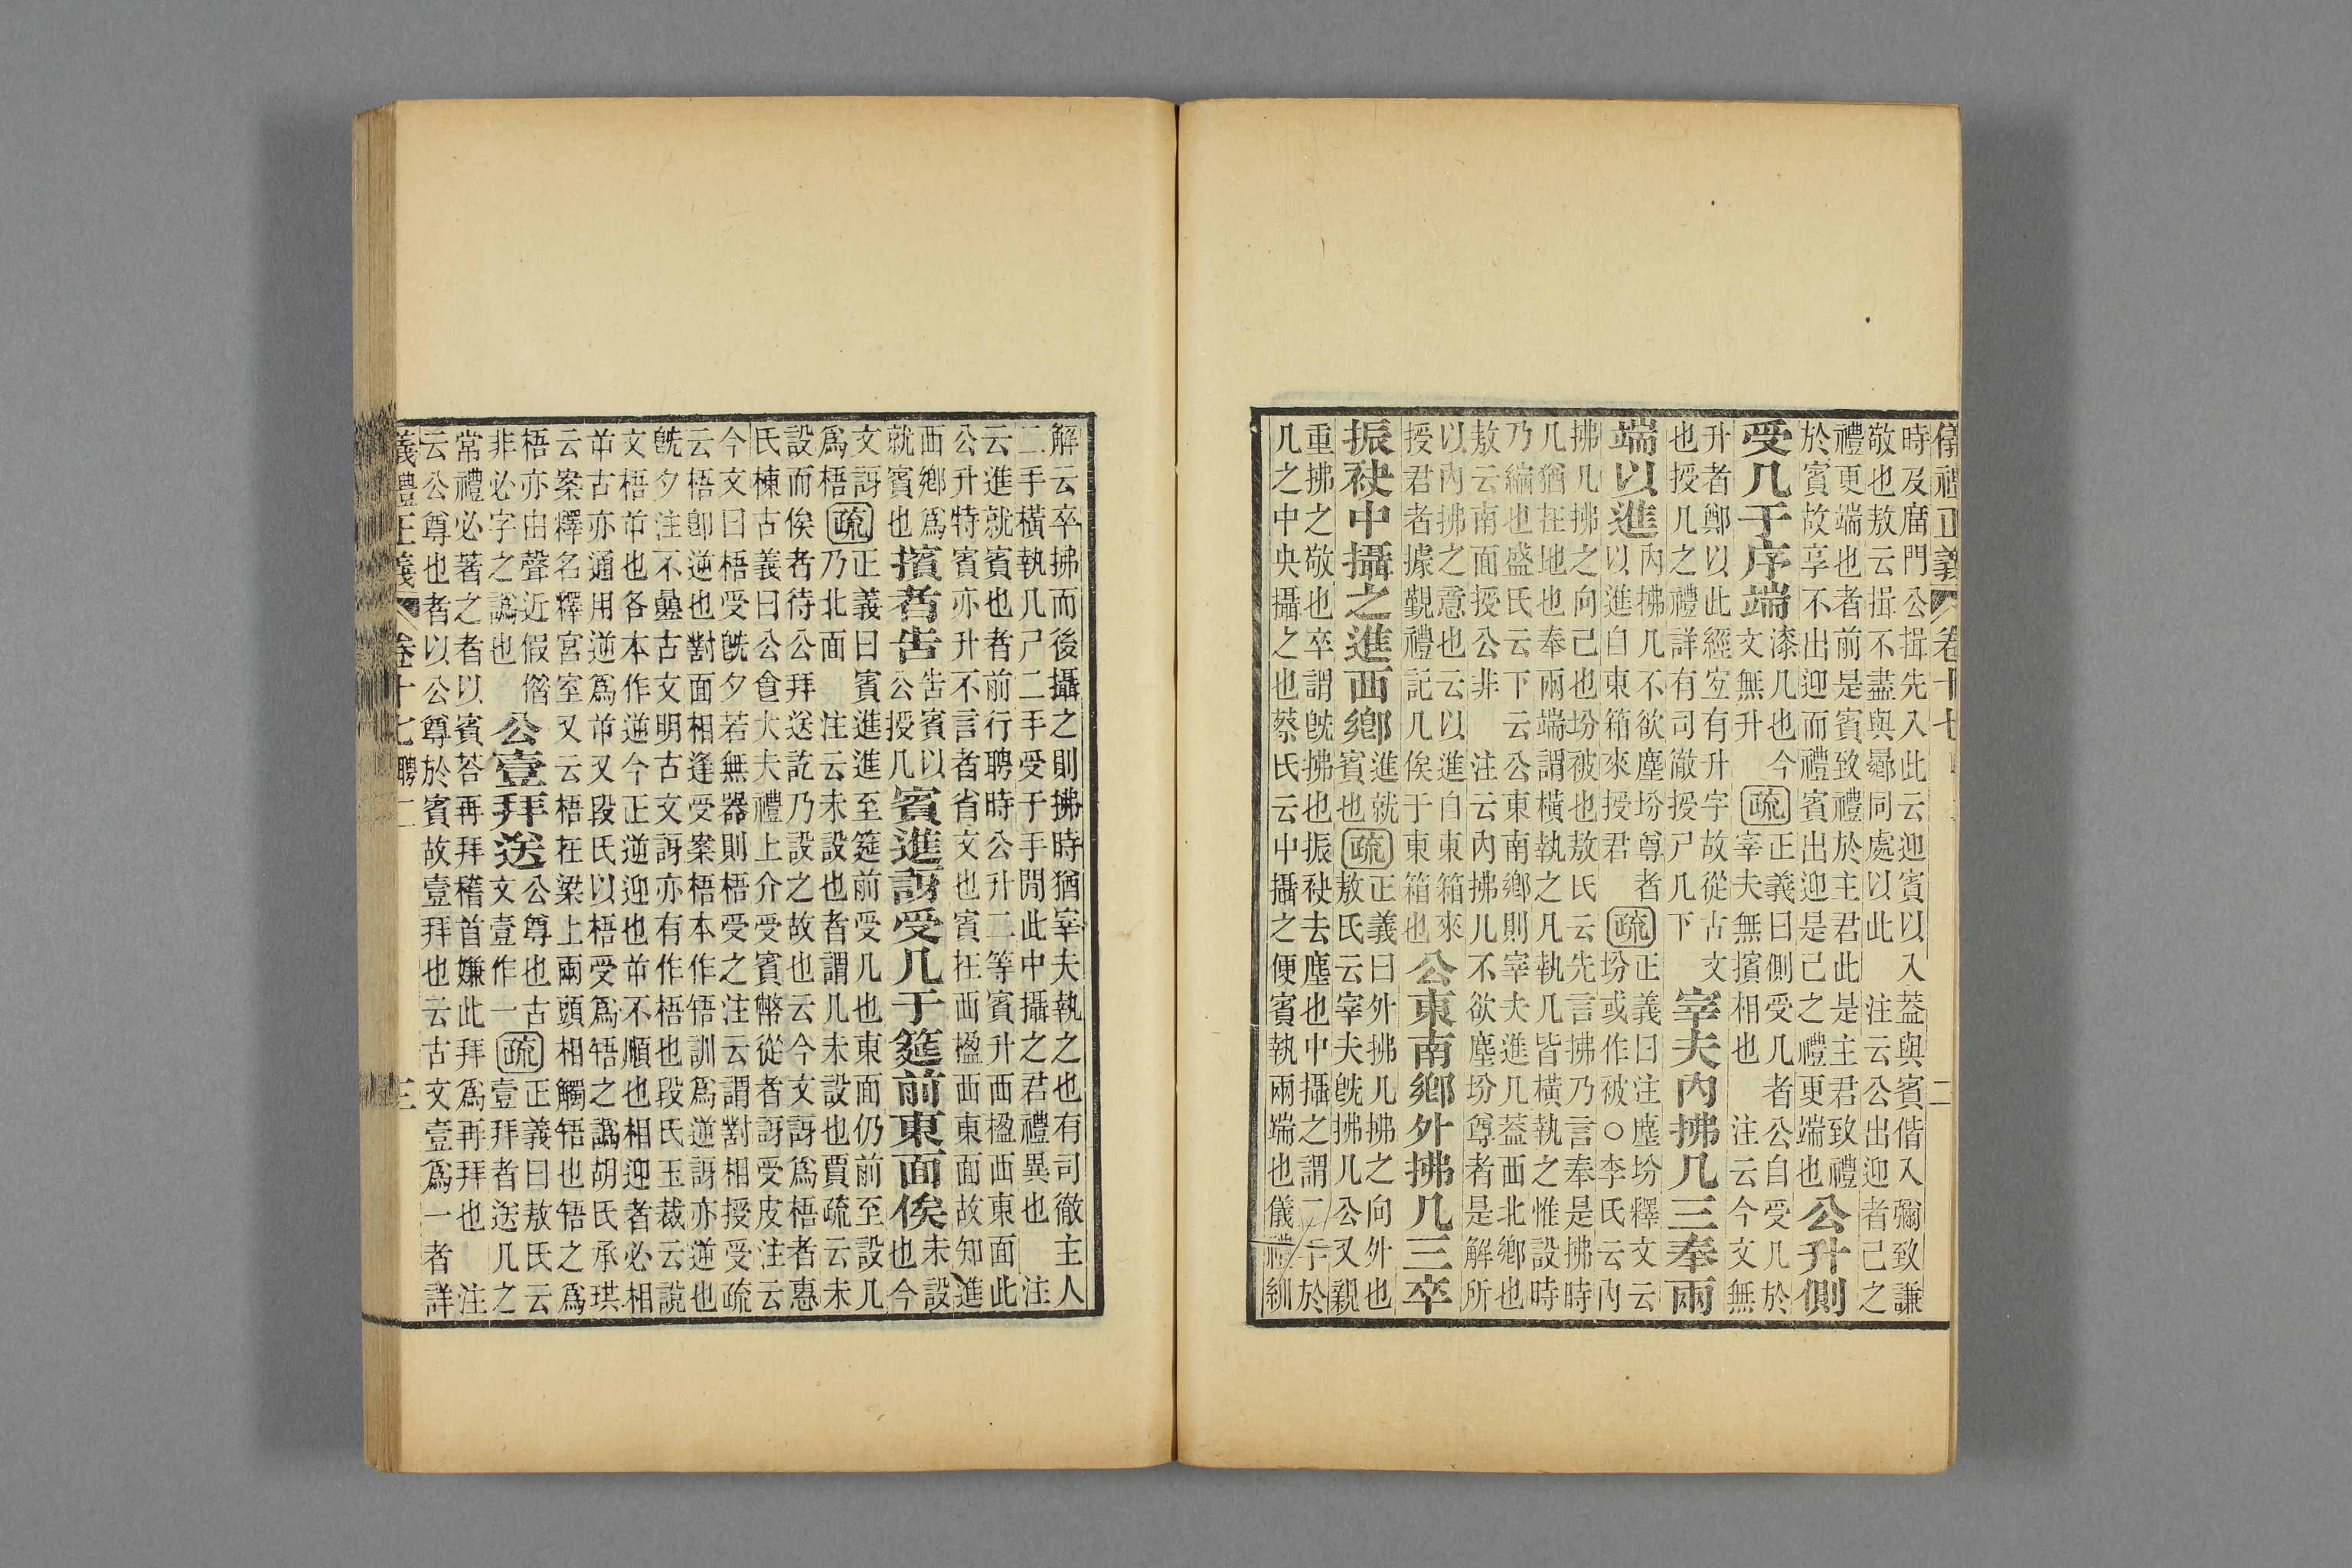 儀禮正義 卷十七 二
時及廟門公揖先入此云迎賓以入葢與賓偕入彌致謙
敬也敖云揖不盡與曏同處以此 注云公出迎者己之
禮更端也者前是賓致禮於主君此是主君致禮
於賓故享不出迎而禮賓出迎是己之禮更端也
公升側
受几于序端
漆几也今
文無升
疏
正義曰側受几者公自受几於
宰夫無擯相也 注云今文無
升者鄭以此經宐有升字故從古文
也授几之禮詳有司徹授尸几下
宰夫內拂几三奉兩
端以進
內拂几不欲塵坋尊者
以進自東箱來授君
疏
正義曰注塵坋釋文云
坋或作被○李氏云內
拂几拂之向己也坋被也敖氏云先言拂乃言奉是拂時
几猶在地也奉兩端謂橫執之凡執几皆橫執之惟設時
乃縮也盛氏云下云公東南鄉則宰夫進几葢西北鄉也
敖云南面授公非 注云內拂几不欲塵坋尊者是解所
以內拂之意也云以進自東箱來
授君者據覲禮記几俟于東箱也
公東南鄉外拂几三卒
振袂中攝之進西鄉
進就
賓也
疏
正義曰外拂几拂之向外也
敖氏云宰夫旣拂几公又親
重拂之敬也卒謂旣拂也振袂去塵也中攝之謂二手於
几之中央攝之也蔡氏云中攝之便賓執兩端也儀禮紃
解云卒拂而後攝之則拂時猶宰夫執之也有司徹主人
二手橫執几尸二手受于手閒此中攝之君禮異也 注
云進就賓也者前行聘時公升二等賓升西楹西東面此
公升特賓亦升不言者省文也賓在西楹西東面故知進
西鄉爲
就賓也
擯者告
告賓以
公授几
賓進訝受几于筵前東面俟
未設
也今
文訝
爲梧
疏
正義曰賓進進至筵前受几也東面仍前至設几
乃北面 注云未設也者謂几未設也賈疏云未
設而俟者待公拜送訖乃設之故也云今文訝爲梧者惠
氏棟古義曰公食大夫禮上介受賓幣從者訝受皮注云
今文曰梧受旣夕若無器則梧受之注云謂對相授受疏
云梧卽逆也對面相逢受案梧本作啎訓爲逆訝亦逆也
旣夕注不疊古文明古文訝亦有作梧也段氏玉裁云說
文梧屰也各本作逆今正逆迎也屰不順也相迎者必相
屰古亦通用逆爲屰又段氏以梧受爲啎之譌胡氏承珙
云案釋名釋宮室又云梧在梁上兩頭相觸啎也啎之爲
梧亦由聲近假借
非必字之譌也
公壹拜送
公尊也古
文壹作一
疏
正義曰敖氏云
壹拜者送几之
常禮必著之者以賓荅再拜稽首嫌此拜爲再拜也 注
云公尊也者以公尊於賓故壹拜也云古文壹爲一者詳
義禮正義 卷十七聘二 三